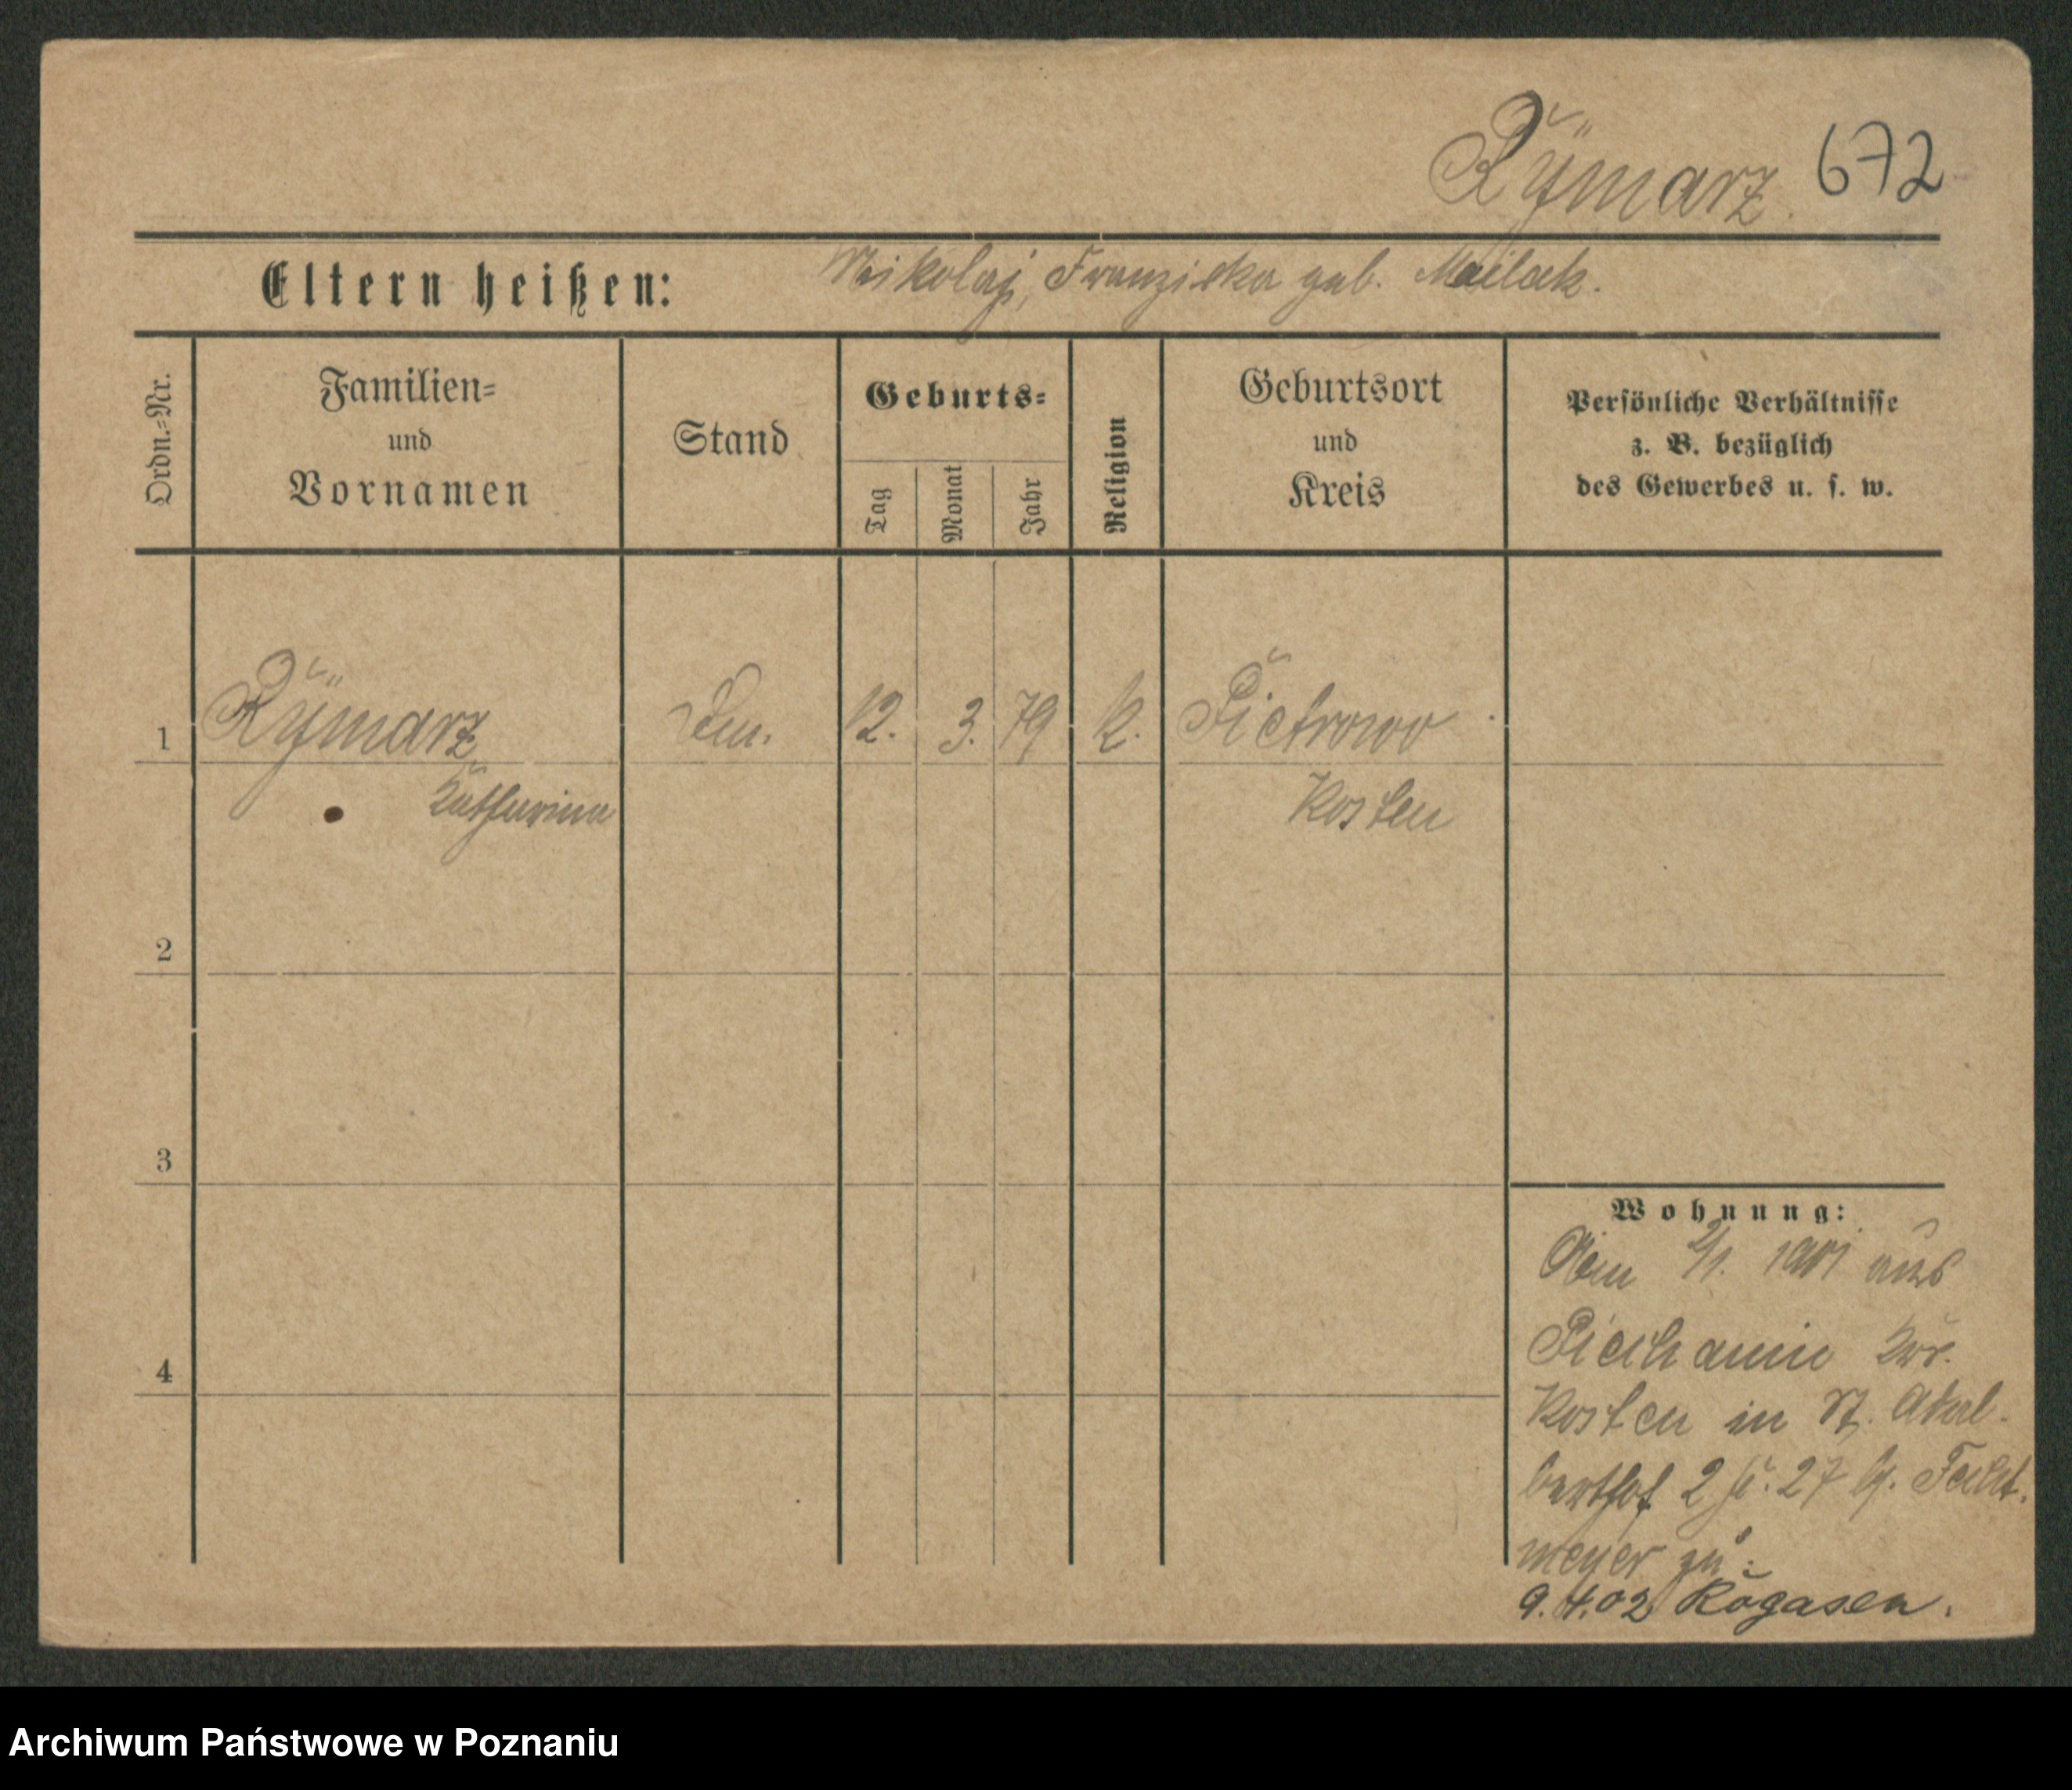 Rÿmarz. 672
Eltern heißen: Nikolaj, Franziska geb. Mailak.
Ordn.=Nr.
Familien=
und
Vornamen
Stand
Geburts=
Tag
Monat
Jahr
Religion
Geburtsort
und
Kreis
Persönliche Verhältnisse
z. B. bezüglich
des Gewerbes u. s. w.
1 Rÿmarz 12. 3. 79 k. Pietrowo
Katharina Kosten
2
3
4
Wohnung:
2/1. 1901 aus
Kosten in St. Adal-
berthof 2 27
meyer zu.
9.4.02 Rogasen.
Archiwum Państwowe w Poznaniu